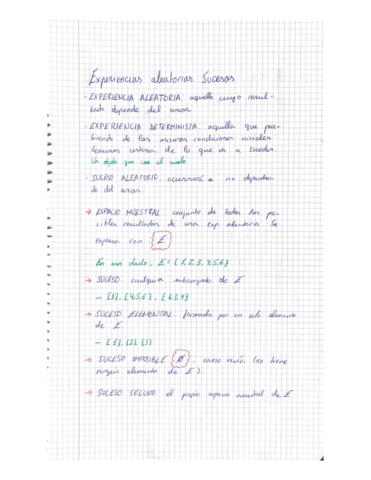 Experiencias aleatorias. Sucesos
- EXPERIENCIA ALEATORIA. aquella cuyo resul-
tado depende del azar.
- EXPERIENCIA DETERMINISTA. aquella que par-
tiendo de las mismas condiciones iniciales
tenemos certeza de lo que va a suceder.
Un objeto que cae al suelo
- SUCESO ALEATORIO. ocurrirá o no dependien-
do del azar.
→ ESPACIO MUESTRAL conjunto de todos los po-
sibles resultados de una exp. aleatoria. Se
expresa con E
En un dado, E = {1,2,3,4,5,6}
→ SUCESO. cualquier subconjunto de E
- {3}, {4,5,6},
→ SUCESO ELEMENTAL. formado por un solo elemento
de E.
- {1}, {2}, {3}
→ SUCESO IMPOSIBLE Ø. suceso vacío. (no tiene
ningún elemento de E).
→ SUCESO SEGURO. el propio espacio muestral de E